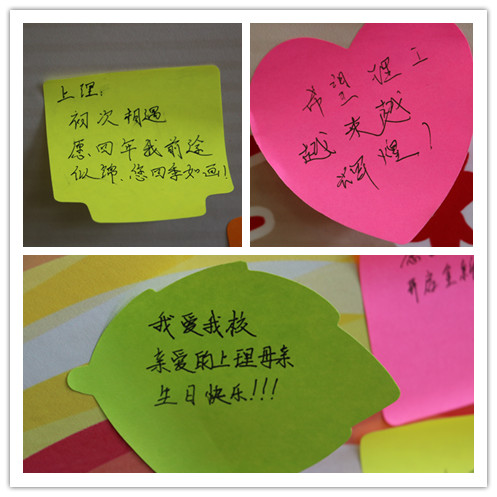 上理:
初次相遇
愿四年我前途
似锦,您四季如画!
希望理工
越来越
辉煌!
我爱我校
亲爱的上理母亲
生日快乐!!!